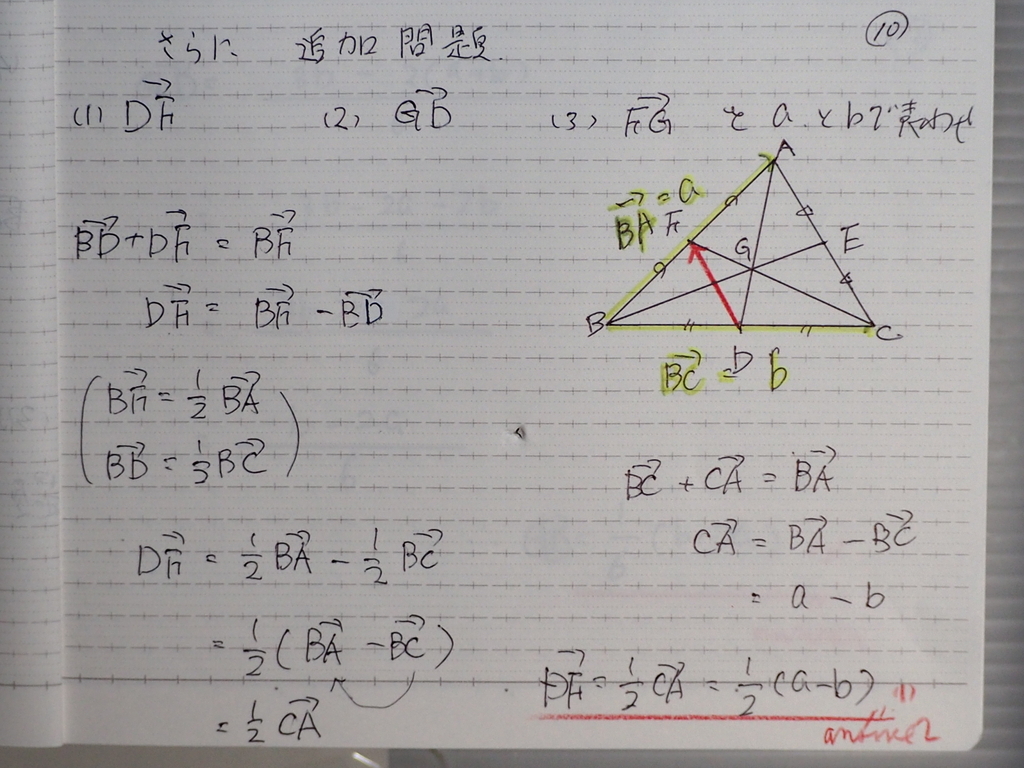 ⑩
さらに 追加問題.
(1) DF→ (2) GD→ (3) FG→ をaとbで表わせ
A
BA→ = a
F
G
E
B
C
D
BC→ = b
BD→ + DF→ = BF→
DF→ = BF→ - BD→
( BF→ = 1/2 BA→
BD→ = 1/3 BC→ )
DF→ = 1/2 BA→ - 1/2 BC→
= 1/2 ( BA→ - BC→ )
= 1/2 CA→
BC→ + CA→ = BA→
CA→ = BA→ - BC→
= a - b
DF→ = 1/2 CA→ = 1/2 (a-b)
(1)
answer